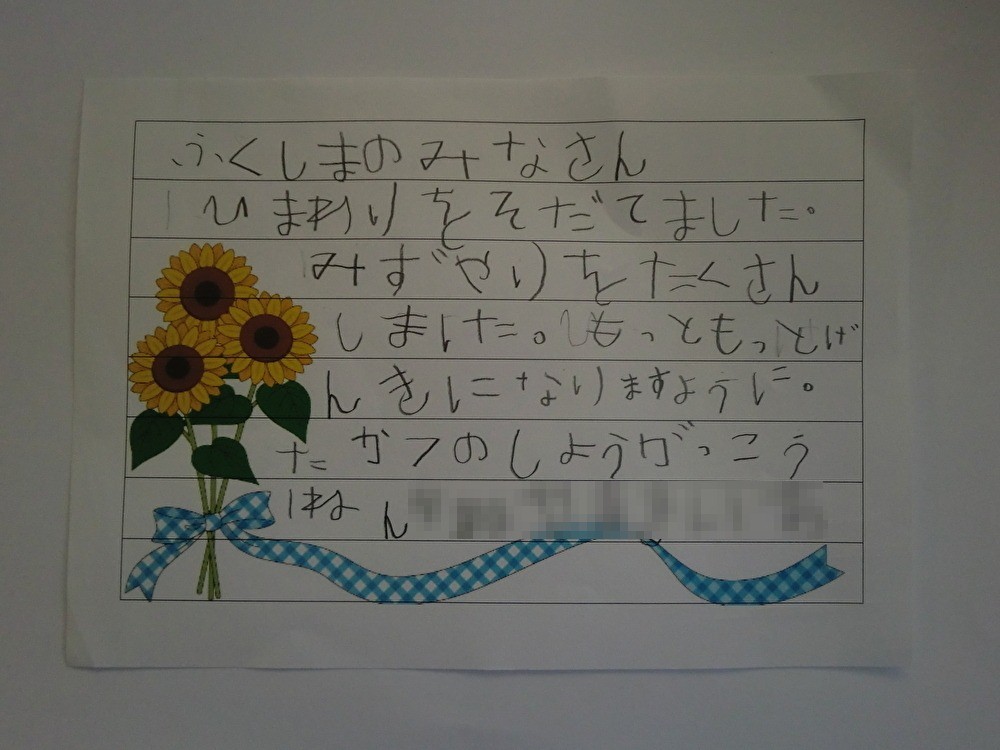 ふくしまのみなさん
ひまわりをそだてました。
みずやりをたくさん
しました。もっともっとげ
んきになりますように。
たかつのしようがっこう
1ねん